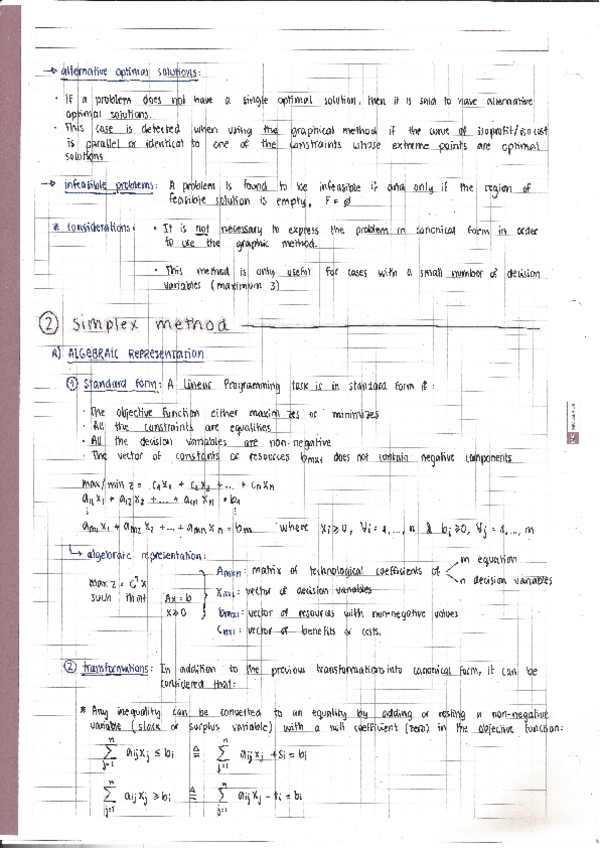 → alternative optimal solutions:
· If a problem does not have a single optimal solution, then it is said to have alternative
optimal solutions.
· This case is detected when using the graphical method if the curve of isoprofit/isocost
is parallel or identical to one of the constraints whose extreme points are optimal
solutions
→ infeasible problems: A problem is found to be infeasible if and only if the region of
feasible solution is empty, F = ∅
* considerations: · It is not necessary to express the problem in canonical form in order
to use the graphic method.
· This method is only useful for cases with a small number of decision
variables (maximum 3)
② Simplex method
A) ALGEBRAIC REPRESENTATION
① Standard form: A Linear Programming task is in standard form if:
· The objective function either maximizes or minimizes
· All the constraints are equalities
· All the decision variables are non-negative
· The vector of constants or resources bmx1 does not contain negative components
max/min z = c1x1 + c2x2 + ... + cnxn
a11x1 + a12x2 + ... + a1nxn = b1
⋮ ⋮
am1x1 + am2x2 + ... + amnxn = bm where xi ≥ 0, ∀i = 1,...,n & bj ≥ 0, ∀j = 1,..., m
↳ algebraic representation:
max z = cᵀx
such that Ax = b
x ≥ 0
Amxn: matrix of technological coefficients of m equation
n decision variables
xnx1: vector of decision variables
bmx1: vector of resources with non-negative values
cnx1: vector of benefits or costs.
② transformations: In addition to the previous transformations into canonical form, it can be
considered that:
* Any inequality can be converted to an equality by adding or resting a non-negative
variable (slack or surplus variable) with a null coefficient (zero) in the objective function:
n∑j=1 aijxj ≤ bi ≙ n∑j=1 aijxj + si = bi
n∑j=1 aijxj ≥ bi ≙ n∑j=1 aijxj - ti = bi